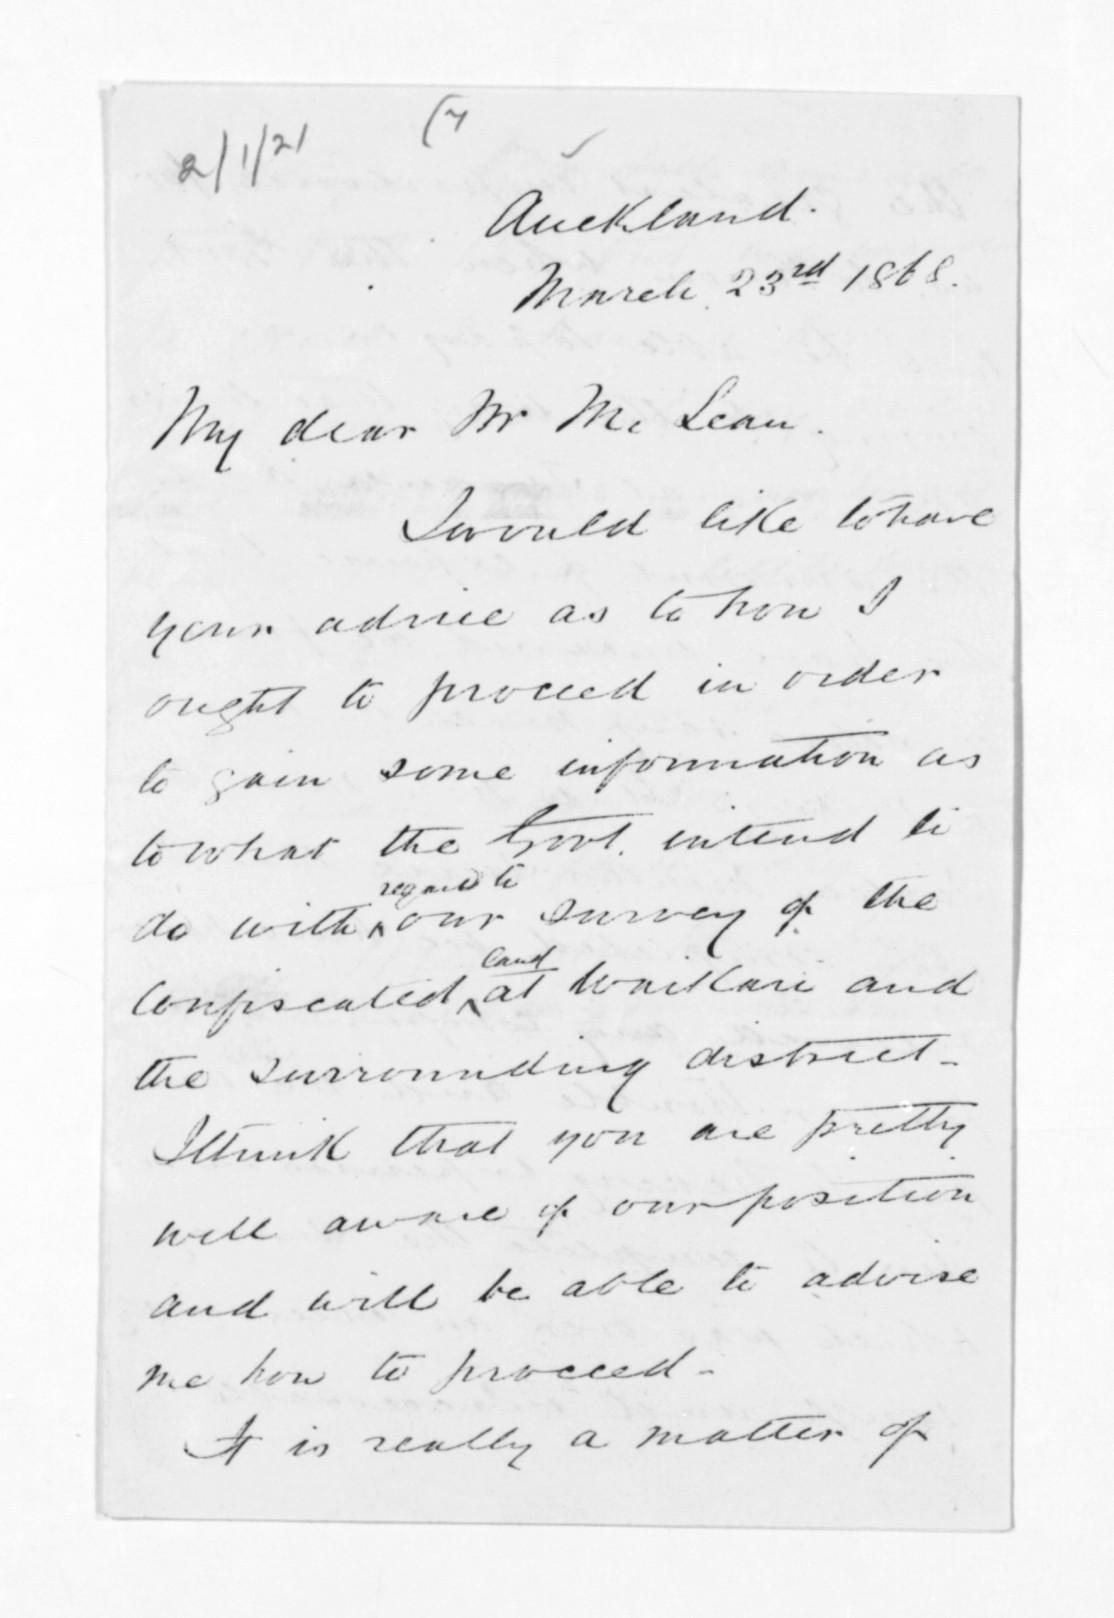 2/1/21
(7
Auckland.
March 23rd 1868.
My dear Mr McLean.
I would like to have
your advice as to how I
ought to proceed in order
to gain some information as
to what the Govt. intend to
regard to
do with our survey of the
land
Confiscated at Waikari and
the surrounding district -
I think that you are pretty
well aware of our position
and will be able to advise
me how to proceed -
It is really a matter of